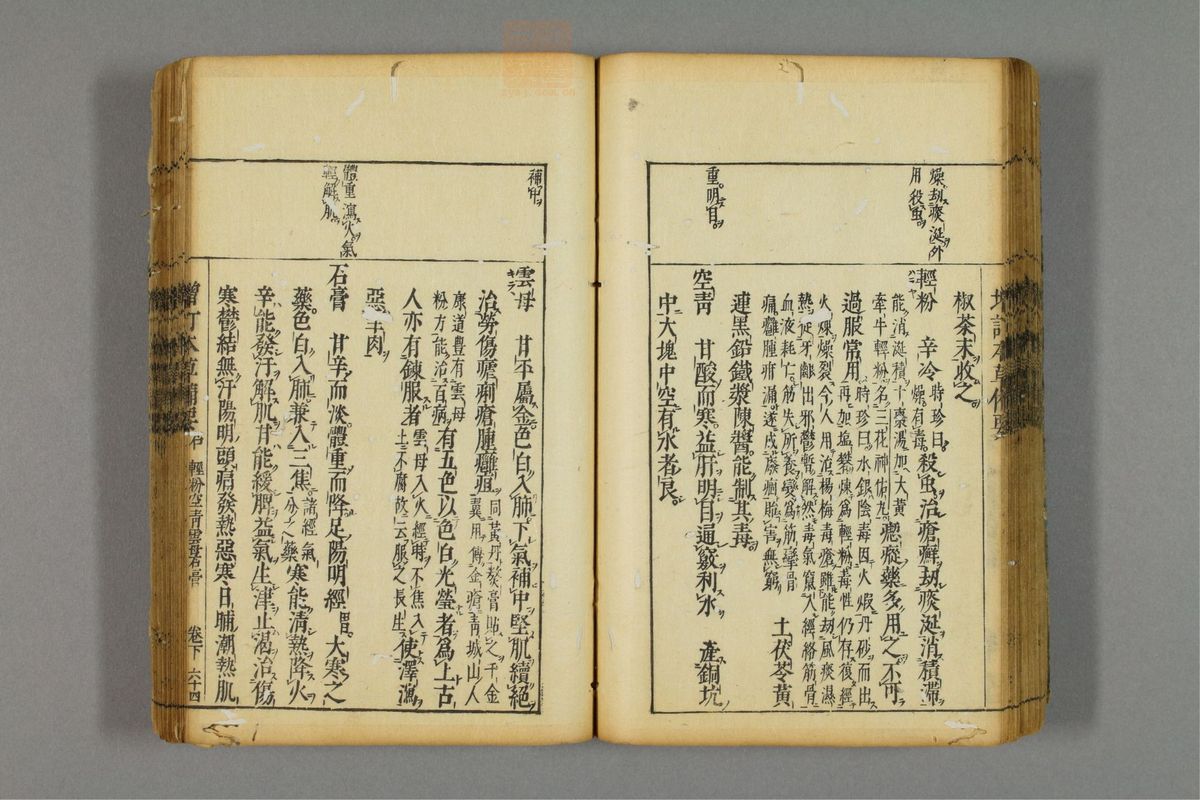 燥劫痰涎外
用殺虫
重明目
椒茶末收之
輕粉 辛冷時珍曰殺虫治瘡癬劫痰涎消積滯
燥有毒
能消涎積十棗湯加大黃
牽牛輕粉名三花神佑丸瘛瘲藥多用之不可
過服常用時珍曰水銀陰毒因火煅丹砂而出
再加塩礬煉為輕粉毒性仍存復經
火煉燥裂今人用治楊梅毒瘡雖能劫風痰濕
熱從牙齦出邪鬱暫解然毒氣竄入經絡筋骨
血液耗亡筋失所養變為筋攣骨
痛癰腫疳漏遂成廢痼貽害無窮 土茯苓黃
連黑鉛鐵漿陳醬能制其毒
空青 甘酸而寒益肝明目通竅利水 產銅坑
中大塊中空有水者良
補中
體重瀉火氣
輕解肌
雲母 甘平屬金色白入肺下氣補中堅肌續絕
治勞傷瘧痢瘡腫癰疽同黃丹熬膏貼之千金
翼用傅金瘡青城山人
康道豐有雲母
粉方能治百病有五色以色白光瑩者為上古
人亦有鍊服者雲母入火經時不焦入
土不腐故云服之長生使澤瀉
惡羊肉
石膏 甘辛而淡體重而降足陽明經胃大寒之
藥色白入肺兼入三焦諸經氣
分之藥寒能清熱降火
辛能發汗解肌甘能緩脾益氣生津止渴治傷
寒鬱結無汗陽明頭痛發熱惡寒日晡潮熱肌
輕粉空青雲母石膏 卷下 六十四